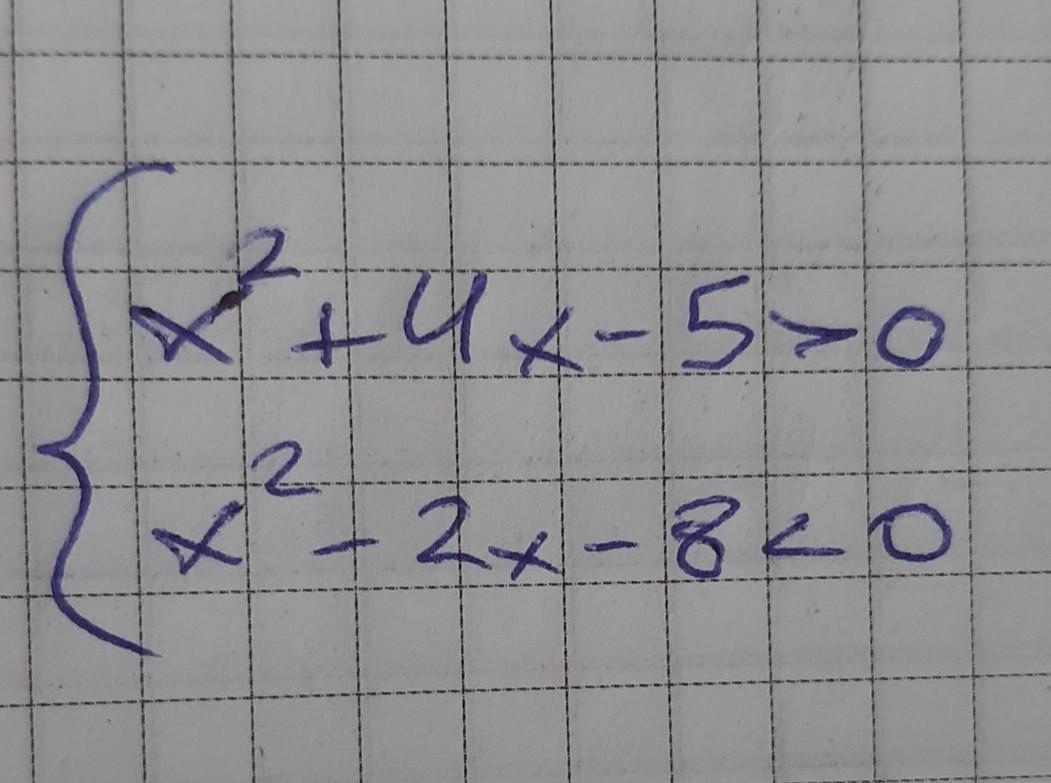 x² + 4x - 5 > 0
x² - 2x - 8 < 0